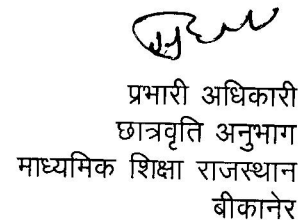 प्रभारी अधिकारी
छात्रवृति अनुभाग
माध्यमिक शिक्षा राजस्थान
बीकानेर